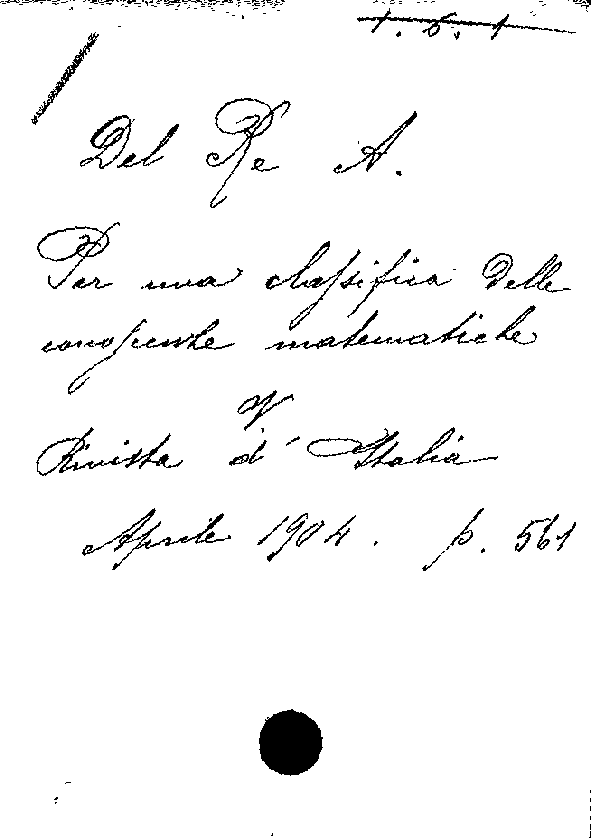 1.6.1
Del Re A.
Per una classifica delle
conoscenze matematiche
V
Rivista d'Italia
Aprile 1904. p. 561